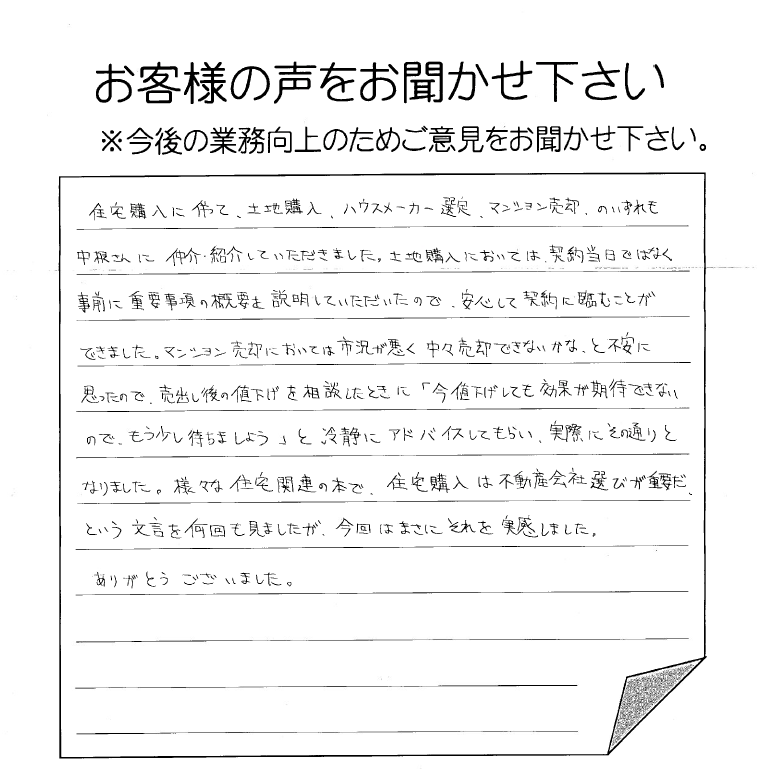 お客様の声をお聞かせ下さい
※今後の業務向上のためご意見をお聞かせ下さい。
住宅購入に伴って、土地購入、ハウスメーカー選定、マンション売却、のいずれも
中根さんに仲介・紹介していただきました。土地購入においては、契約当日ではなく
事前に重要事項の概要を説明していただいたので、安心して契約に臨むことが
できました。マンション売却においては市況が悪く中々売却できないかな、と不安に
思ったので、売出し後の値下げを相談したときに「今値下げしても効果が期待できない
ので、もう少し待ちましょう」と冷静にアドバイスしてもらい、実際にその通りと
なりました。様々な住宅関連の本で、住宅購入は不動産会社選びが重要だ、
という文言を何回も見ましたが、今回はまさにそれを実感しました。
ありがとうございました。